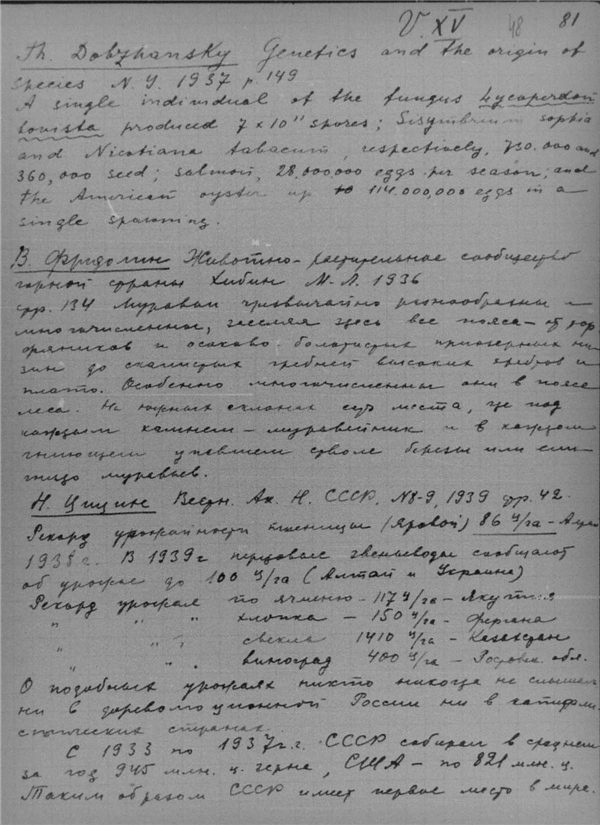 V. XV 48 81
Th. Dobzhansky Genetics and the origin of
species N. Y. 1937 p. 149
A single individual of the fungus Lycoperdon
bovista produced 7 x 10" spores; Sisymbrium sophia
and Nicotiana tabacum, respectively, 730.000 and
360,000 seed; salmon, 28,000,000 eggs per season; and
the American oyster up to 114,000,000 eggs in a
single spawning.
В. Фридолин Животно-растительное сообщество
горной страны Хибин М-Л. 1936
стр. 134 Муравьи чрезвычайно разнообразны и
многочисленны, заселяя здесь все пояса - от тор-
фяников и осоково болотистых приозерных ни-
зин до скалистых гребней высоких хребтов и
плато. Особенно многочисленны они в поясе
леса. На южных склонах есть места, где под
каждым камнем - муравейник и в каждом
гниющем упавшем стволе березы или ели
гнездо муравьев.
Н. Цицин Вестн. Ак. Н. СССР, N8-9, 1939 стр. 42.
Рекорд урожайности пшеницы (яровой) 86 ц/га - Алтай
1938 г. В 1939 г передовые звеньеводы сообщают
об урожае до 100 ц/га (Алтай и Украина)
Рекорд урожая по ячменю - 117 ц/га - Якутия
" " " хлопка - 150 ц/га - Фергана
" " " свекла 1410 ц/га - Казахстан
" " " виноград 400 ц/га - Ростовск. обл.
О подобных урожаях никто никогда не слышал
ни в дореволюционной России ни в капитали-
стических странах.
С 1933 по 1937 г.г. СССР собирал в среднем
за год 945 млн. ц. зерна, США - по 821 млн. ц.
Таким образом СССР имеет первое место в мире.